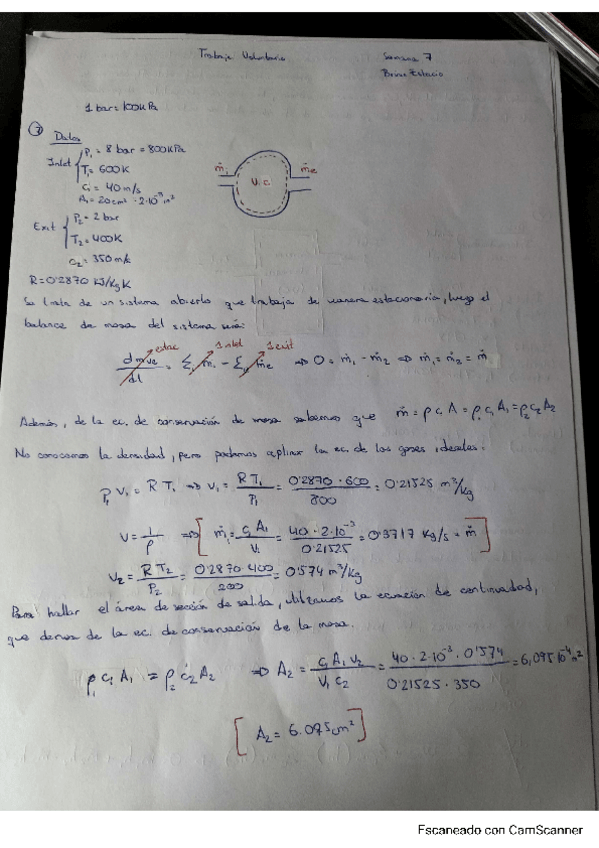 Trabajo Voluntario Semana 7
1 bar = 100 kPa
7 Datos
Inlet { P₁ = 8 bar = 800 kPa
T₁ = 600 K
c₁ = 40 m/s
A₁ = 20 cm² · 2·10⁻³ m²
ṁᵢ V.C. ṁe
Exit { P₂ = 2 bar
T₂ = 400 K
c₂ = 350 m/s
R = 0'2870 KJ/Kg K
Se trata de un sistema abierto que trabaja de manera estacionaria, luego el
balance de masa del sistema será:
estac 1 inlet 1 exit
dmvc/dt = Σ ṁᵢ - Σ ṁe ⇒ 0 = ṁ₁ - ṁ₂ ⇒ ṁ₁ = ṁ₂ = ṁ
Además, de la ec. de conservación de masa sabemos que ṁ = ρ c A = ρ₁ c₁ A₁ = ρ₂ c₂ A₂
No conocemos la densidad, pero podemos aplicar la ec. de los gases ideales:
P₁ V₁ = R T₁ ⇒ V₁ = R T₁/P₁ = 0'2870 · 600/800 = 0'21525 m³/Kg
V = 1/ρ ⇒ [ ṁ₁ = c₁ A₁/V₁ = 40 · 2·10⁻³/0'21525 = 0'3717 Kg/s = ṁ ]
V₂ = R T₂/P₂ = 0'2870·400/200 = 0'574 m³/Kg
Para hallar el área de sección de salida, utilizamos la ecuación de continuidad,
que deriva de la ec. de conservación de la masa.
ρ₁ c₁ A₁ = ρ₂ c₂ A₂ ⇒ A₂ = c₁ A₁ V₂/V₁ c₂ = 40 · 2·10⁻³ · 0'574/0'21525 · 350 = 6,095·10⁻⁴ m²
[ A₂ = 6.095 cm² ]
Escaneado con CamScanner